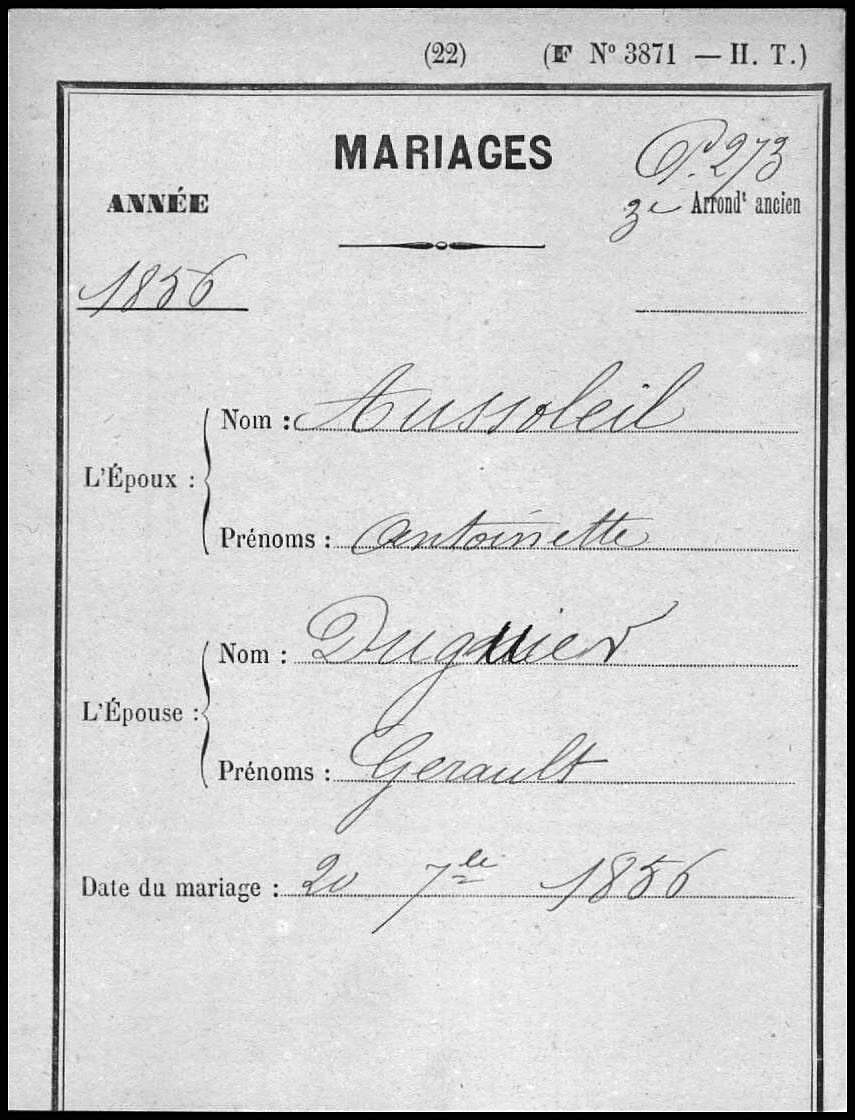 (22) (F N° 3871 — H. T.)
MARIAGES
P. 273
ANNÉE
3e Arrondt ancien
1856
L'Époux :
Nom : Aussoleil
Prénoms : Antoinette
L'Épouse :
Nom : Duguier
Prénoms : Gerault
Date du mariage : 20 7bre 1856